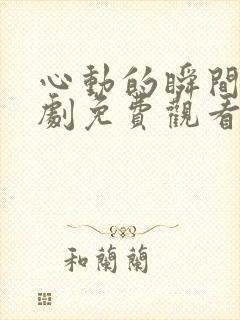 心動的瞬間
劇免費觀看
和蘭蘭